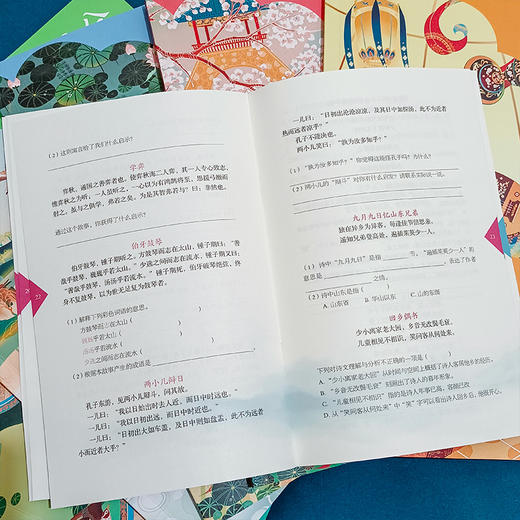 （2）这则寓言给了我们什么启示？
学弈
弈秋，通国之善弈者也。使弈秋诲二人弈，其一人专心致志，
惟弈秋之为听；一人虽听之，一心以为有鸿鹄将至，思援弓缴而
射之。虽与之俱学，弗若之矣。为是其智弗若与？曰：非然也。
通过这个故事，你获得了什么启示？
伯牙鼓琴
伯牙鼓琴，锺子期听之。方鼓琴而志在太山，锺子期曰：“善
哉乎鼓琴，巍巍乎若太山。”少选之间而志在流水，锺子期又曰：“善
哉乎鼓琴，汤汤乎若流水。”锺子期死，伯牙破琴绝弦，终
身不复鼓琴，以为世无足复为鼓琴者。
（1）解释下列彩色词语的意思。
方鼓琴而志在太山（ ）
巍巍乎若太山（ ）
汤汤乎若流水（ ）
少选之间而志在流水（ ）
（2）根据本故事产生的成语是
两小儿辩日
孔子东游，见两小儿辩斗，问其故。
一儿曰：“我以日始出时去人近，而日中时远也。”
一儿曰：“我以日初出远，而日中时近也。”
一儿曰：“日初出大如车盖，及日中则如盘盂，此不为远者
小而近者大乎？”
22
一儿曰：“日初出沧沧凉凉，及其日中如探汤，此不为近者
热而远者凉乎？”
孔子不能决也。
两小儿笑曰：“孰为汝多知乎？”
（1）“孰为汝多知乎？”你觉得这能怪孔子吗？为什么？
（2）两小儿的“辩斗”对你有什么启发？请联系实际说一说。
九月九日忆山东兄弟
独在异乡为异客，每逢佳节倍思亲。
遥知兄弟登高处，遍插茱萸少一人。
（1）诗中“九月九日”是指 节，“遍插茱萸少一人”的
意思是 ，表达了作者
之情。
（2）诗中山东是指（ ）
A. 山东省 B. 华山以东 C. 山的东面
回乡偶书
少小离家老大回，乡音无改鬓毛衰。
儿童相见不相识，笑问客从何处来。
下列对诗文理解与分析不正确的一项是（ ）
A. “少小离家老大回”从时间与空间上概括了诗人客居他乡的经历。
B. “乡音无改鬓毛衰”刻画出了诗人的暮年形象。
C. “儿童相见不相识”指的是诗人年事已高，容颜已改
D. 从“笑问客从何处来”中“笑”字可以看出诗人回乡后，他很开心。
23